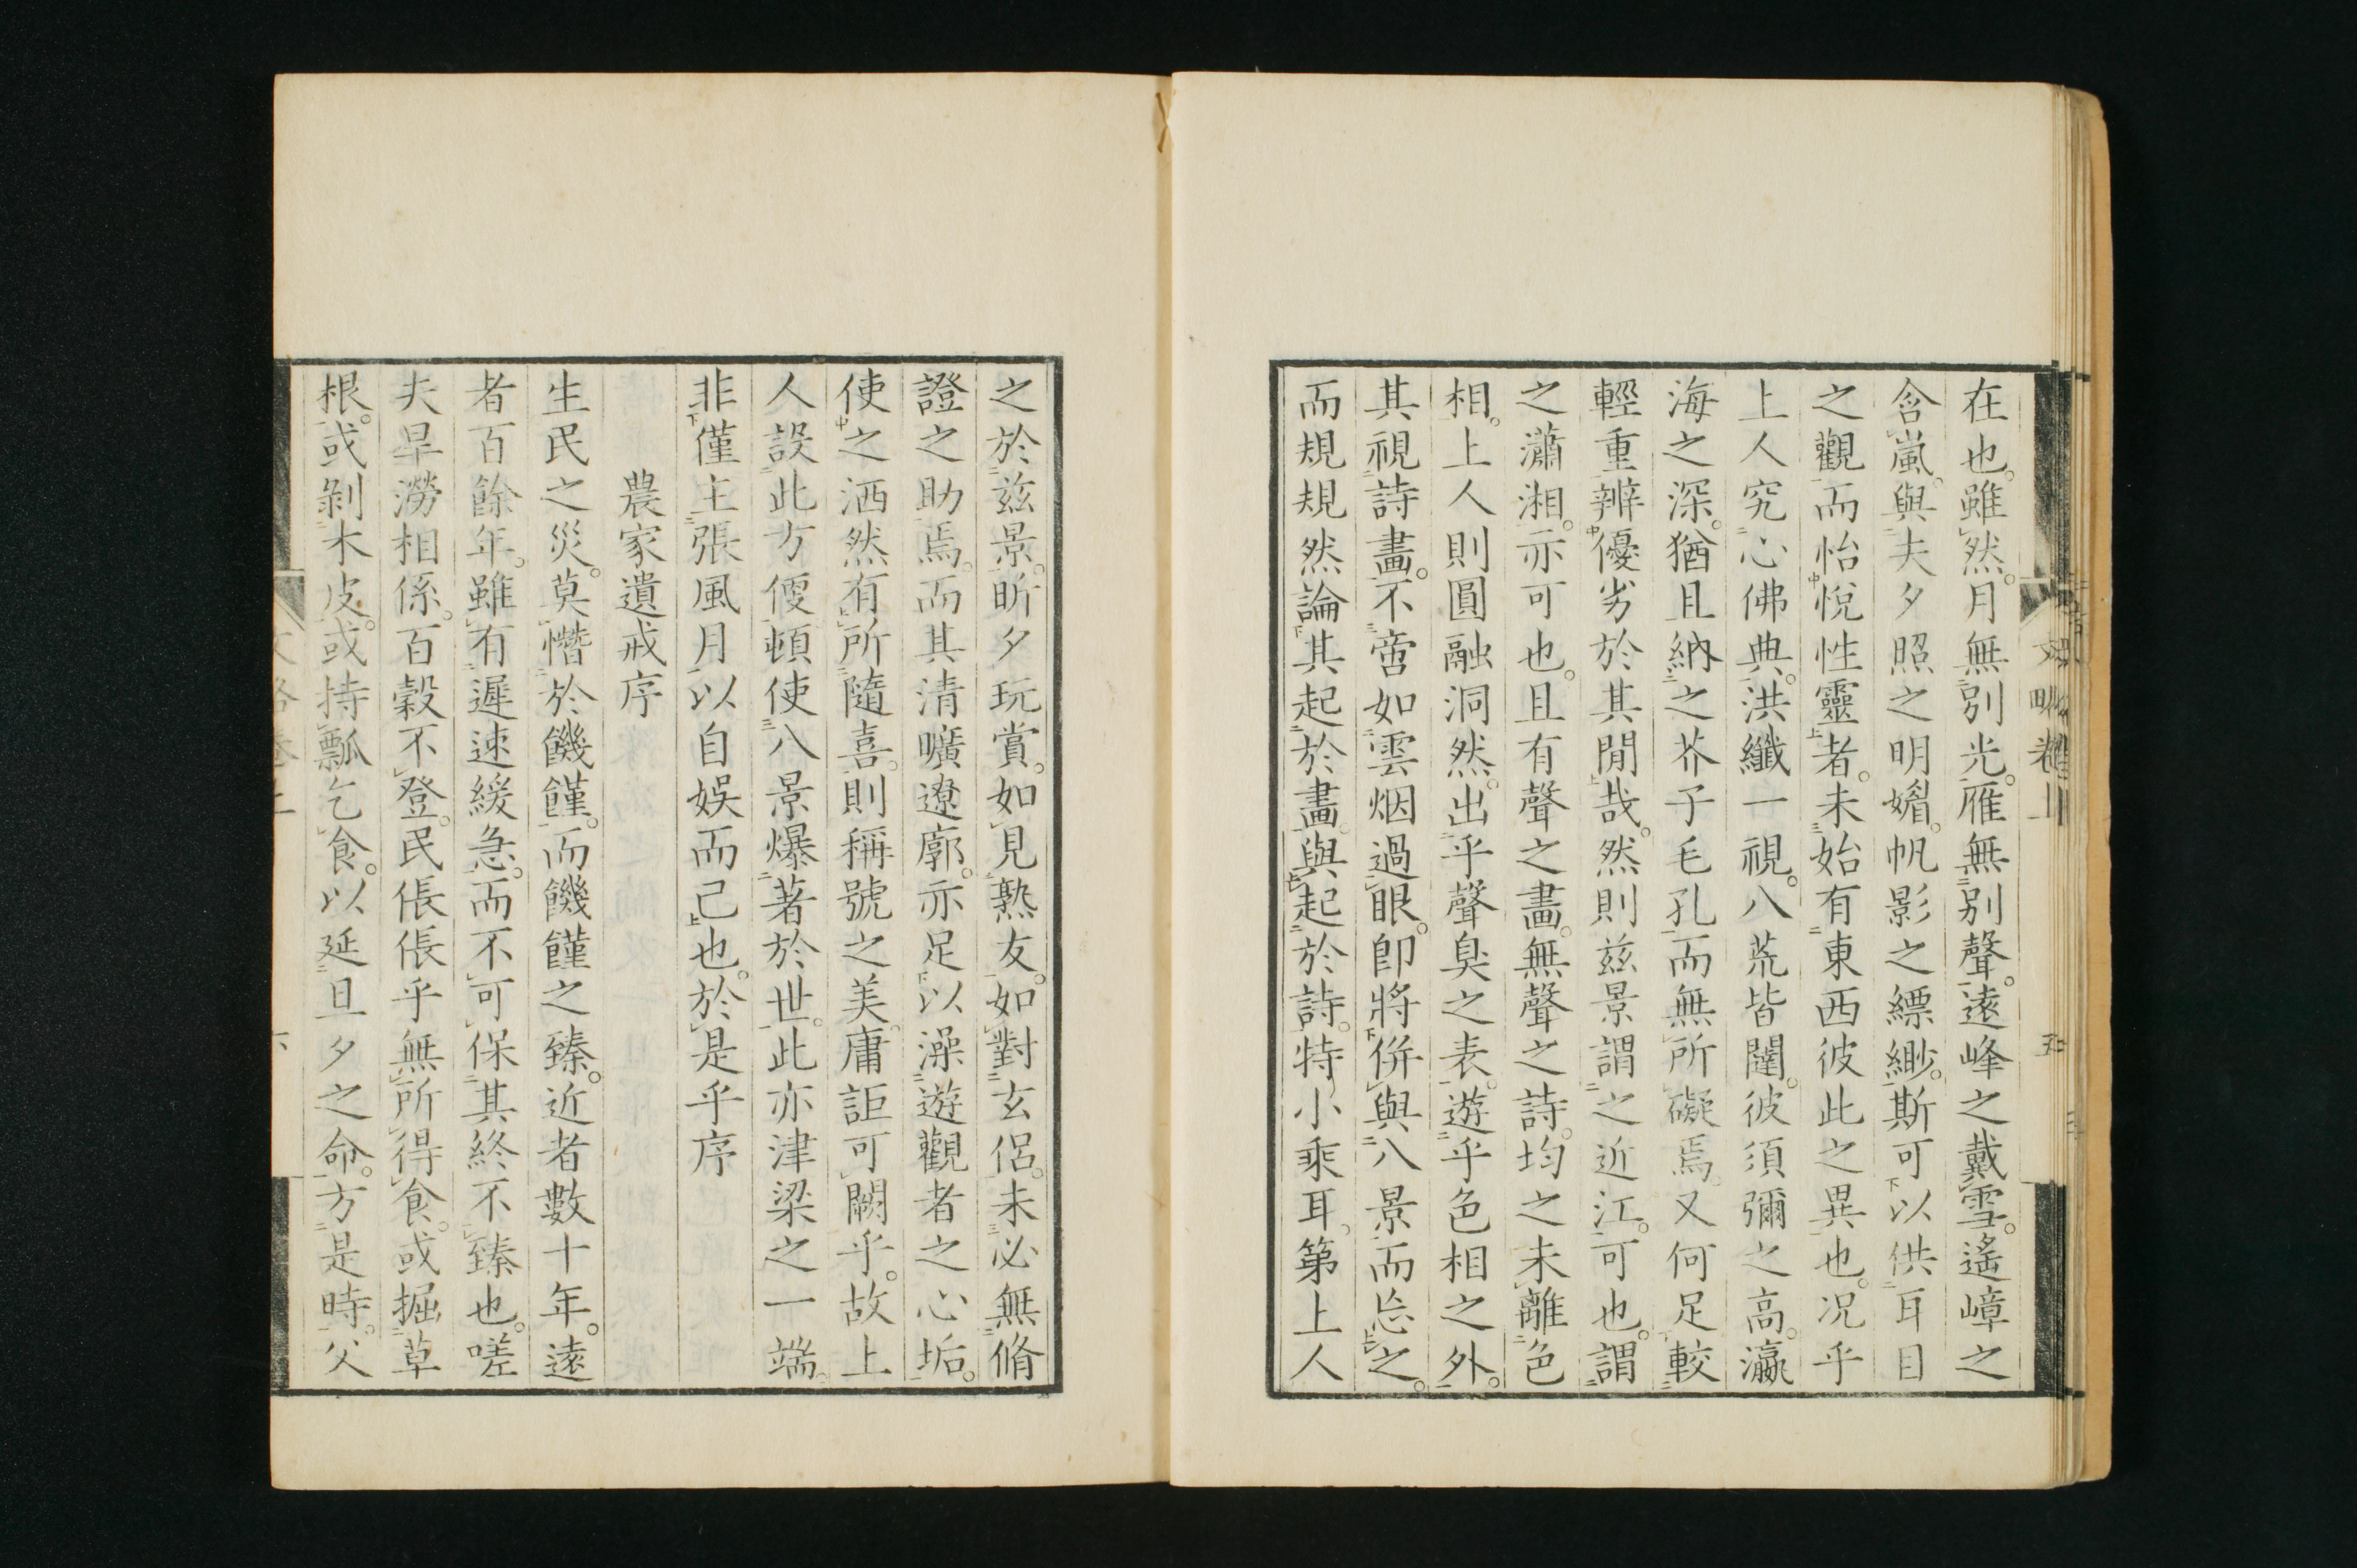 在也。雖然。月無別光。雁無別聲。遠峰之戴雪。遙嶂之
含嵐。與夫夕照之明媚。帆影之縹緲。斯可以供耳目
之觀而怡悅性靈者。未始有東西彼此之異也。况乎
上人究心佛典。洪纖一視。八荒皆闥。彼須彌之高。瀛
海之深。猶且納之芥子毛孔而無所礙焉。又何足較
輕重辨優劣於其間哉。然則茲景謂之近江。可也。謂
之瀟湘。亦可也。且有聲之畫。無聲之詩。均之未離色
相。上人則圓融洞然。出乎聲臭之表。遊乎色相之外。
其視詩畫。不啻如雲烟過眼。卽將併與八景而忘之。
而規規然論其起於畫。與起於詩。特小乘耳。第上人
之於茲景。昕夕玩賞。如見熟友。如對玄侶。未必無脩
證之助焉。而其清曠遼廓。亦足以澡遊觀者之心垢。
使之洒然有所隨喜。則稱號之美。庸詎可闕乎。故上
人設此方便頓使八景爆著於世。此亦津梁之一端。
非僅主張風月以自娛而己也。於是乎序
農家遺戒序
生民之災。莫憯於饑饉。而饑饉之臻。近者數十年。遠
者百餘年。雖有遲速緩急。而不可保其終不臻也。嗟
夫旱澇相係。百穀不登。民倀倀乎無所得食。或掘草
根。或剝木皮。或持瓢乞食。以延旦夕之命。方是時。父